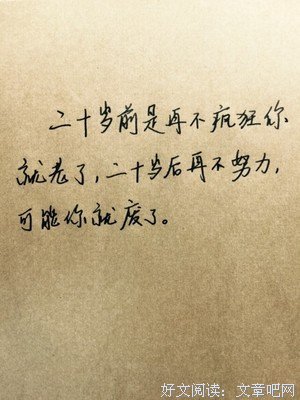 二十岁前是再不疯狂你
就老了，二十岁后再不努力，
可能你就废了。
好文阅读：文章吧网